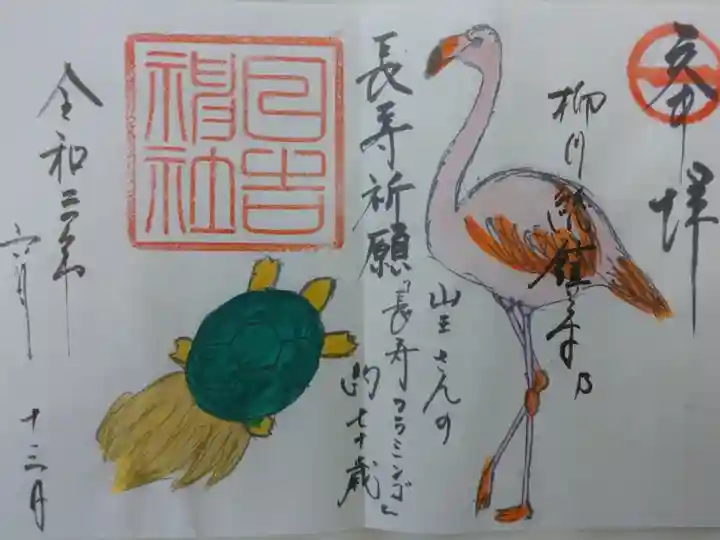 奉拝
柳川総鎮守
乃
山王さんの
長寿祈願「長寿フラミンゴ」
的七十歳
日吉
神社
令和三年
六月
十三日